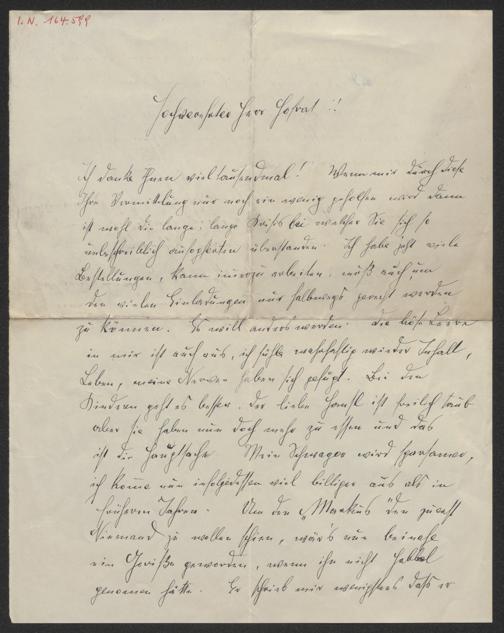 I. N. 164.599
Hochverehrter Herr Hofrat!!
Ich danke Ihnen vieltausendmal! Wenn mir durch diese
Ihre Vermittlung nur noch ein wenig geholfen wird dann
ist wohl die lange, lange Krisis bei welcher Sie sich so
unbeschreiblich aufopferten überstanden. Ich habe jetzt viele
Bestellungen, kann arbeiten, muß auch um
den vielen Einladungen nur halbwegs gerecht werden
zu können. Es will anders werden. Die böse Leere
in mir ist auch aus, ich fühle wahrhaftig wieder Inhalt,
Leben, meine Nerven haben sich Bei den
Kindern geht es besser. Der liebe Hansl ist freilich taub
aber sie haben nun doch mehr zu essen und das
ist die Hauptsache Mein Schwager wird sparsamer,
ich komme nun infolgedessen viel billiger aus als in
früheren Jahren. Um den „Markus" den zuerst
Niemand zu wollen schien, wär's nun beinahe
ein Gereiße geworden, wenn ihn nicht
genommen hätte. Er schrieb mir wenigstens daß er